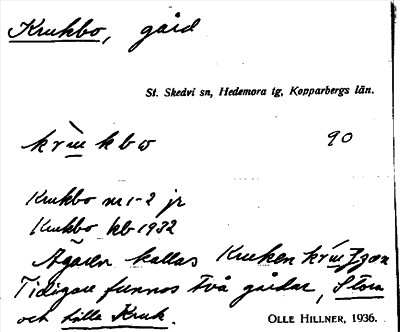 Krukbo, gård
St. Skedvi sn, Hedemora tg, Kopparbergs län.
90
Krukbo nr 1-2 jr
Krukbo kb 1932
Ägaren kallas Kruken
Tidigare funnos två gårdar, Stora
och Lilla Kruk.
OLLE HILLNER, 1936.